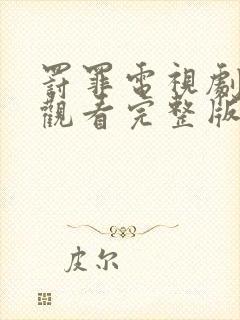 罰罪電視劇
觀看完整版
皮尔